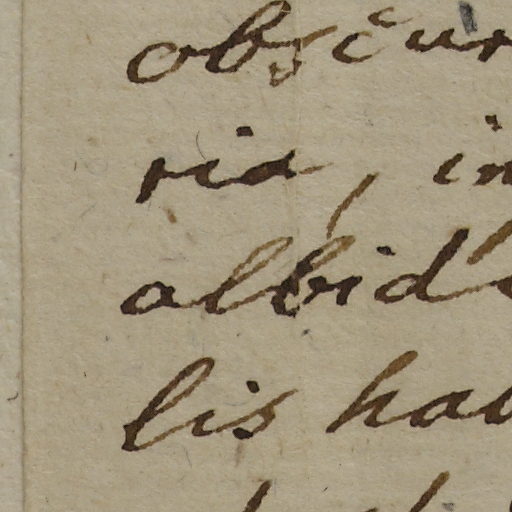 obscur
ria, in
albid
lis hab